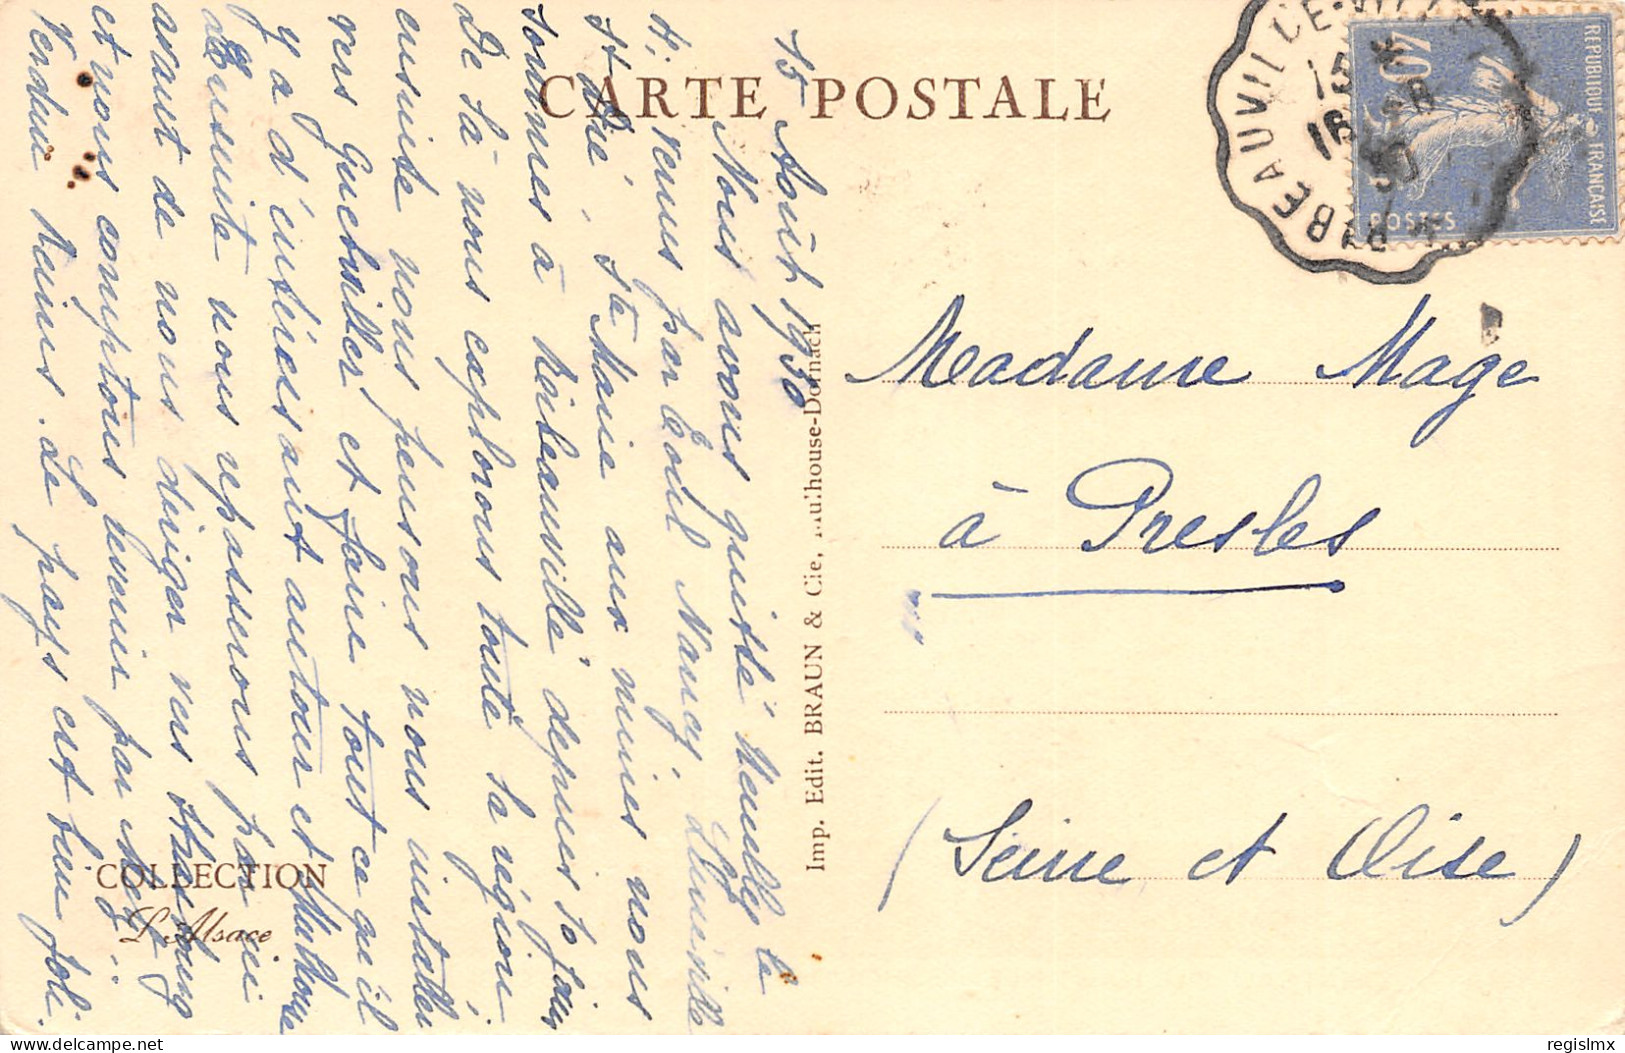 CARTE POSTALE
15 Août 1930
Nous avons quitté Neuilly le
4, venus par Toul Nancy Lunéville
St Dié, Ste Marie aux mines nous
sommes à Ribeauvillé depuis 10 jours
De là nous explorons toute la région
ensuite nous pensons nous installer
vers Guebwiller et faire tout ce qu'il
y a d'intéressant autour et Mulhouse
Ensuite nous repasserons par ici
avant de nous diriger vers Strasbourg
et nous comptons revenir par
Verdun Reims. Le pays est bien joli.
COLLECTION
L'Alsace
Imp. Edit. BRAUN & Cie, Mulhouse-Dornach
RIBEAUVILLE
15
16
30
REPUBLIQUE FRANCAISE
40c
POSTES
Madame Mage
à Presles
(Seine et Oise)
delcampe.net
regislmx